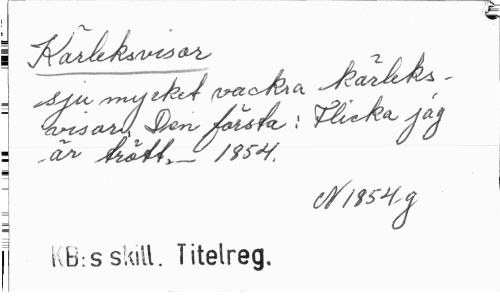 Kärleksvisor
sju mycket vackra kärleks-
visor. Den första: Flicka jag
är trött. — 1854.
N 1854 g
KB:s skill. Titelreg.